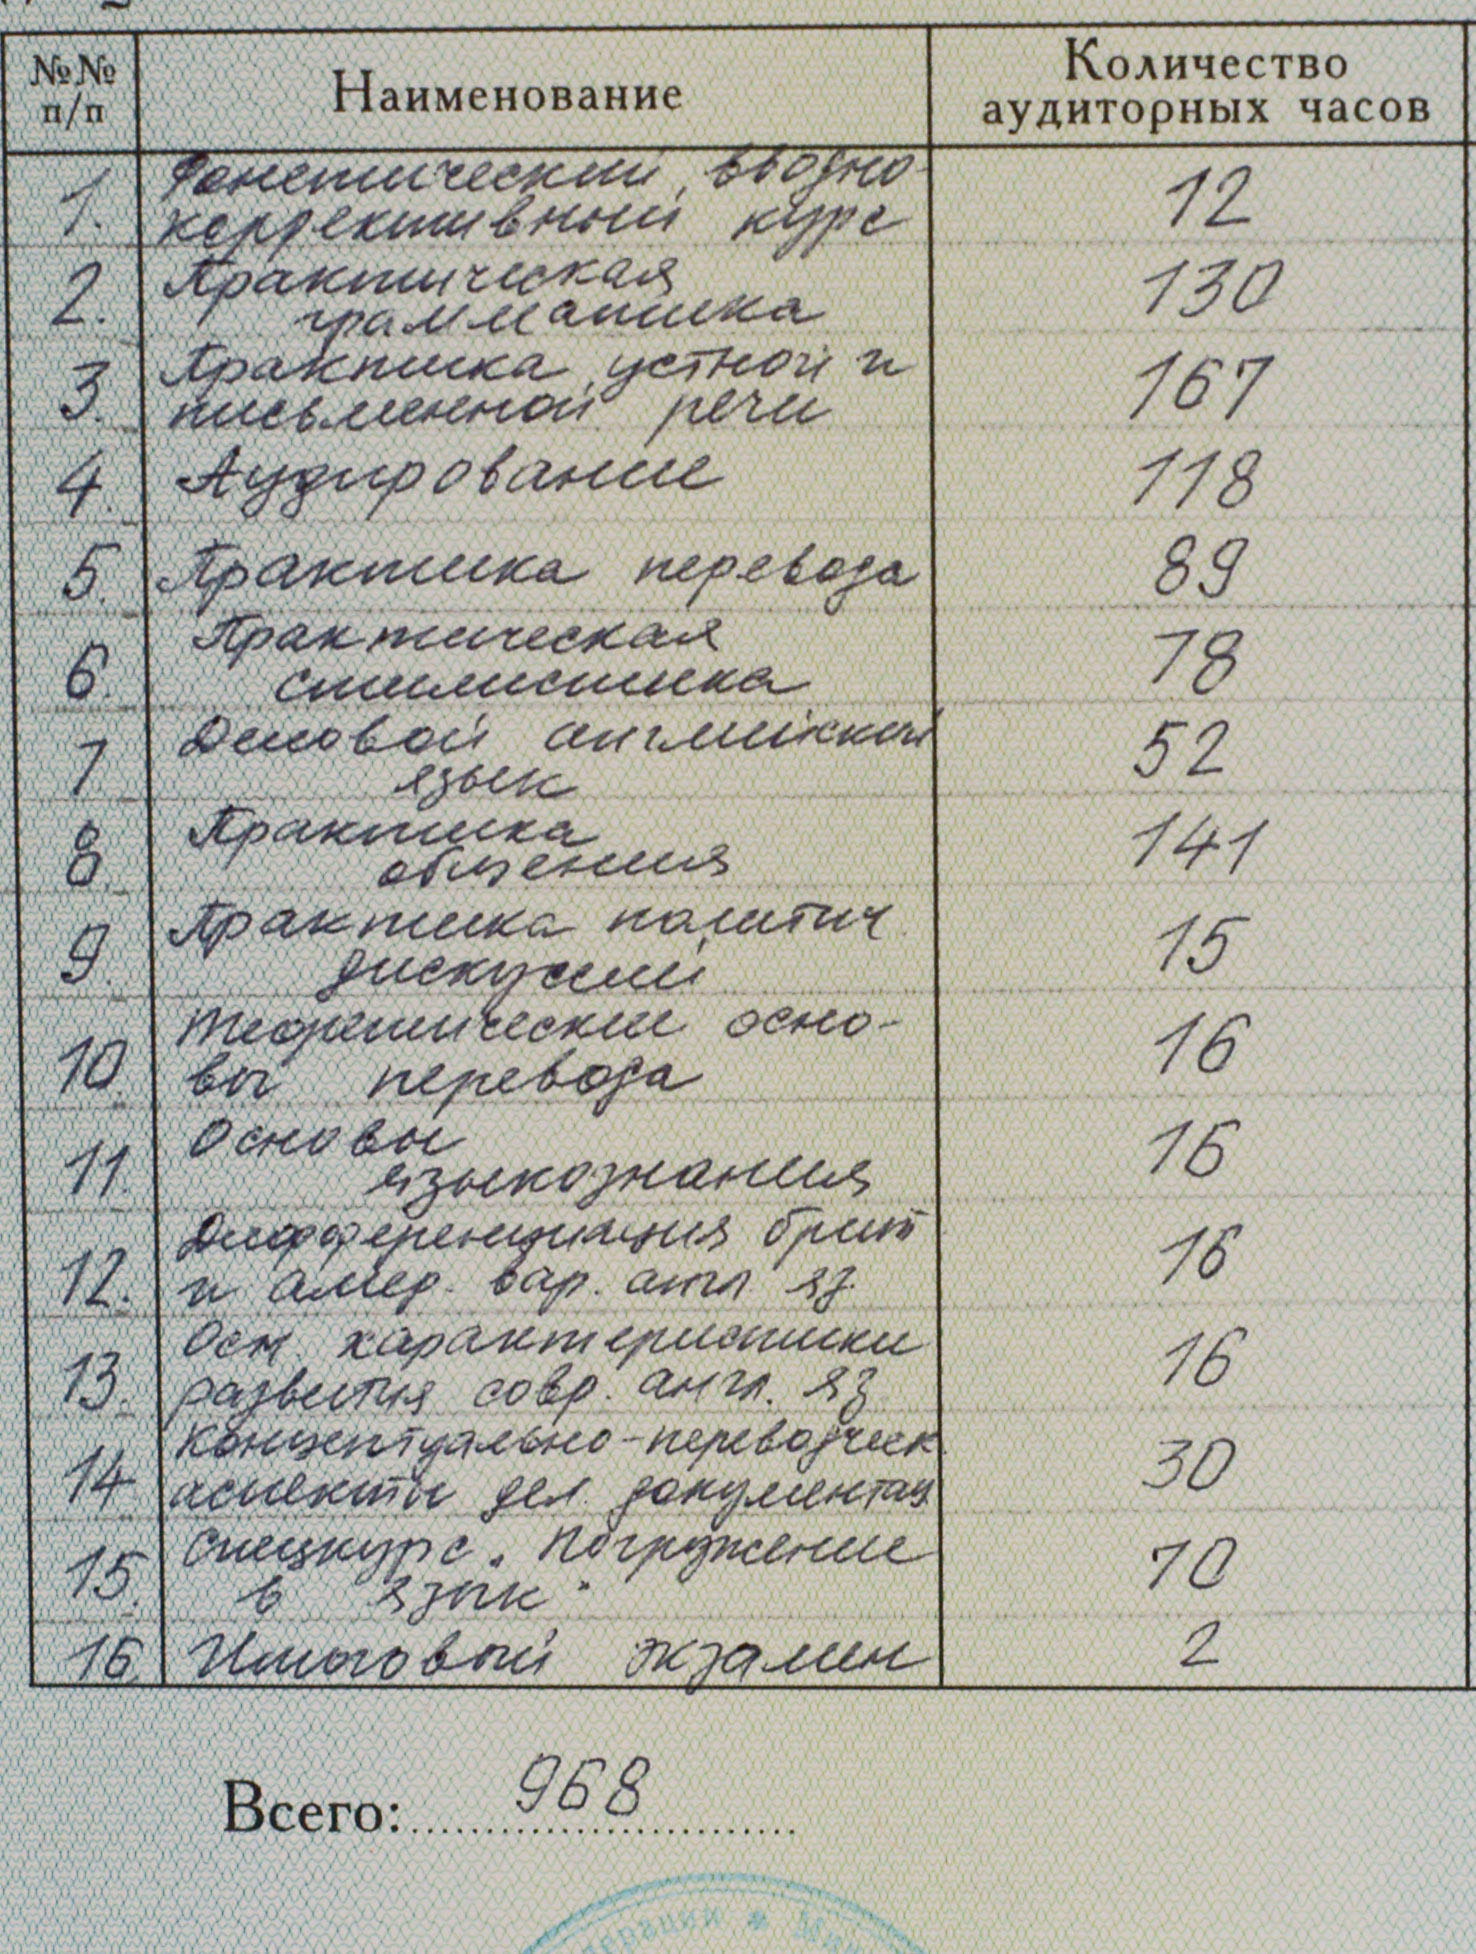 №№
п/п
Наименование
Количество
аудиторных часов
1.
Фонетический вводно-
коррективный курс
12
2.
Практическая
грамматика
130
3.
Практика устной и
письменной речи
167
4.
Аудирование
118
5.
Практика перевода
89
6.
Практическая
стилистика
78
7.
Деловой английский
язык
52
8.
Практика
общения
141
9.
Практика политич.
дискуссий
15
10.
Теоретические осно-
вы перевода
16
11.
Основы
языкознания
16
12.
Дифференциация брит
и амер. вар. англ яз.
16
13.
Осн. характеристики
развития совр. англ. яз.
16
14.
Концептуально-переводческ.
аспекты дел. документац
30
15.
Спецкурс „Погружение
в язык“
70
16.
Итоговый экзамен
2
Всего: 968